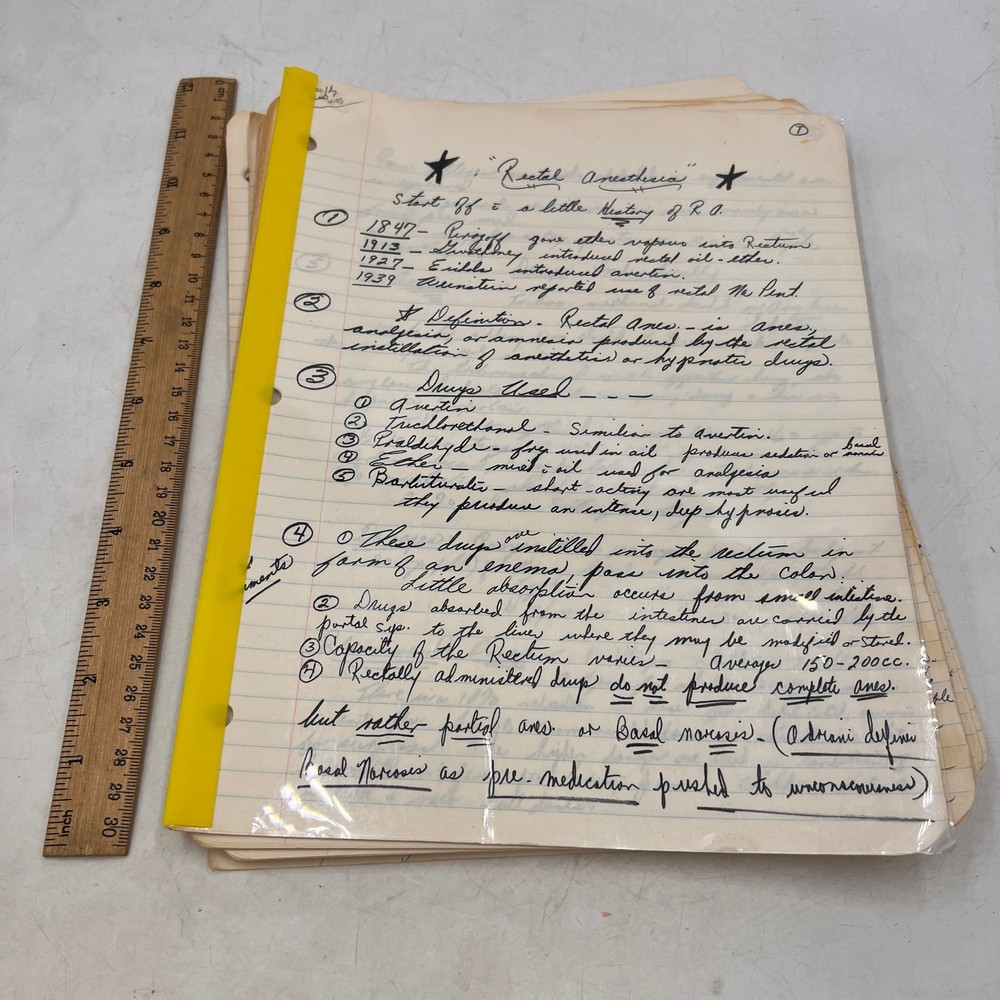 ①
★ "Rectal Anesthesia" ★
Start off c̄ a little History of R.A.
① 1847 – Pirogoff gave ether vapors into Rectum
1913 – Gwathmey introduced rectal oil-ether.
1927 – introduced avertin.
1939 Weinstein reported use of rectal Na Pent.
② Definition - Rectal Anes. - is anes,
analgesia, or amnesia produced by the rectal
instillation of anesthetic or hypnotic drugs.
③ Drugs Used - - -
① Avertin
② Trichlorethanol - Similiar to avertin.
③ Praldehyde - freq used in oil produces sedation or basal narcosis
④ Ether - mixed c̄ oil used for analgesia
⑤ Barbiturates - short-acting are most useful
they produce an intense, deep hypnosis.
④ ① These drugs are instilled into the rectum in
form of an enema, pass into the colon.
Little absorption occurs from small intestine.
② Drugs absorbed from the intestines are carried by the
portal sys. to the liver where they may be modified or stored.
③ Capacity of the Rectum varies - Averages 150-200cc.
④ Rectally administered drugs do not produce complete anes.
but rather partial anes. or Basal narcosis - (Adriani defines
Basal Narcosis as pre-medication pushed to unconsciousness)
cm 1 2 3 4 5 6 7 8 9 10 11 12 13 14 15 16 17 18 19 20 21 22 23 24 25 26 27 28 29 30
inch 1 2 3 4 5 6 7 8 9 10 11